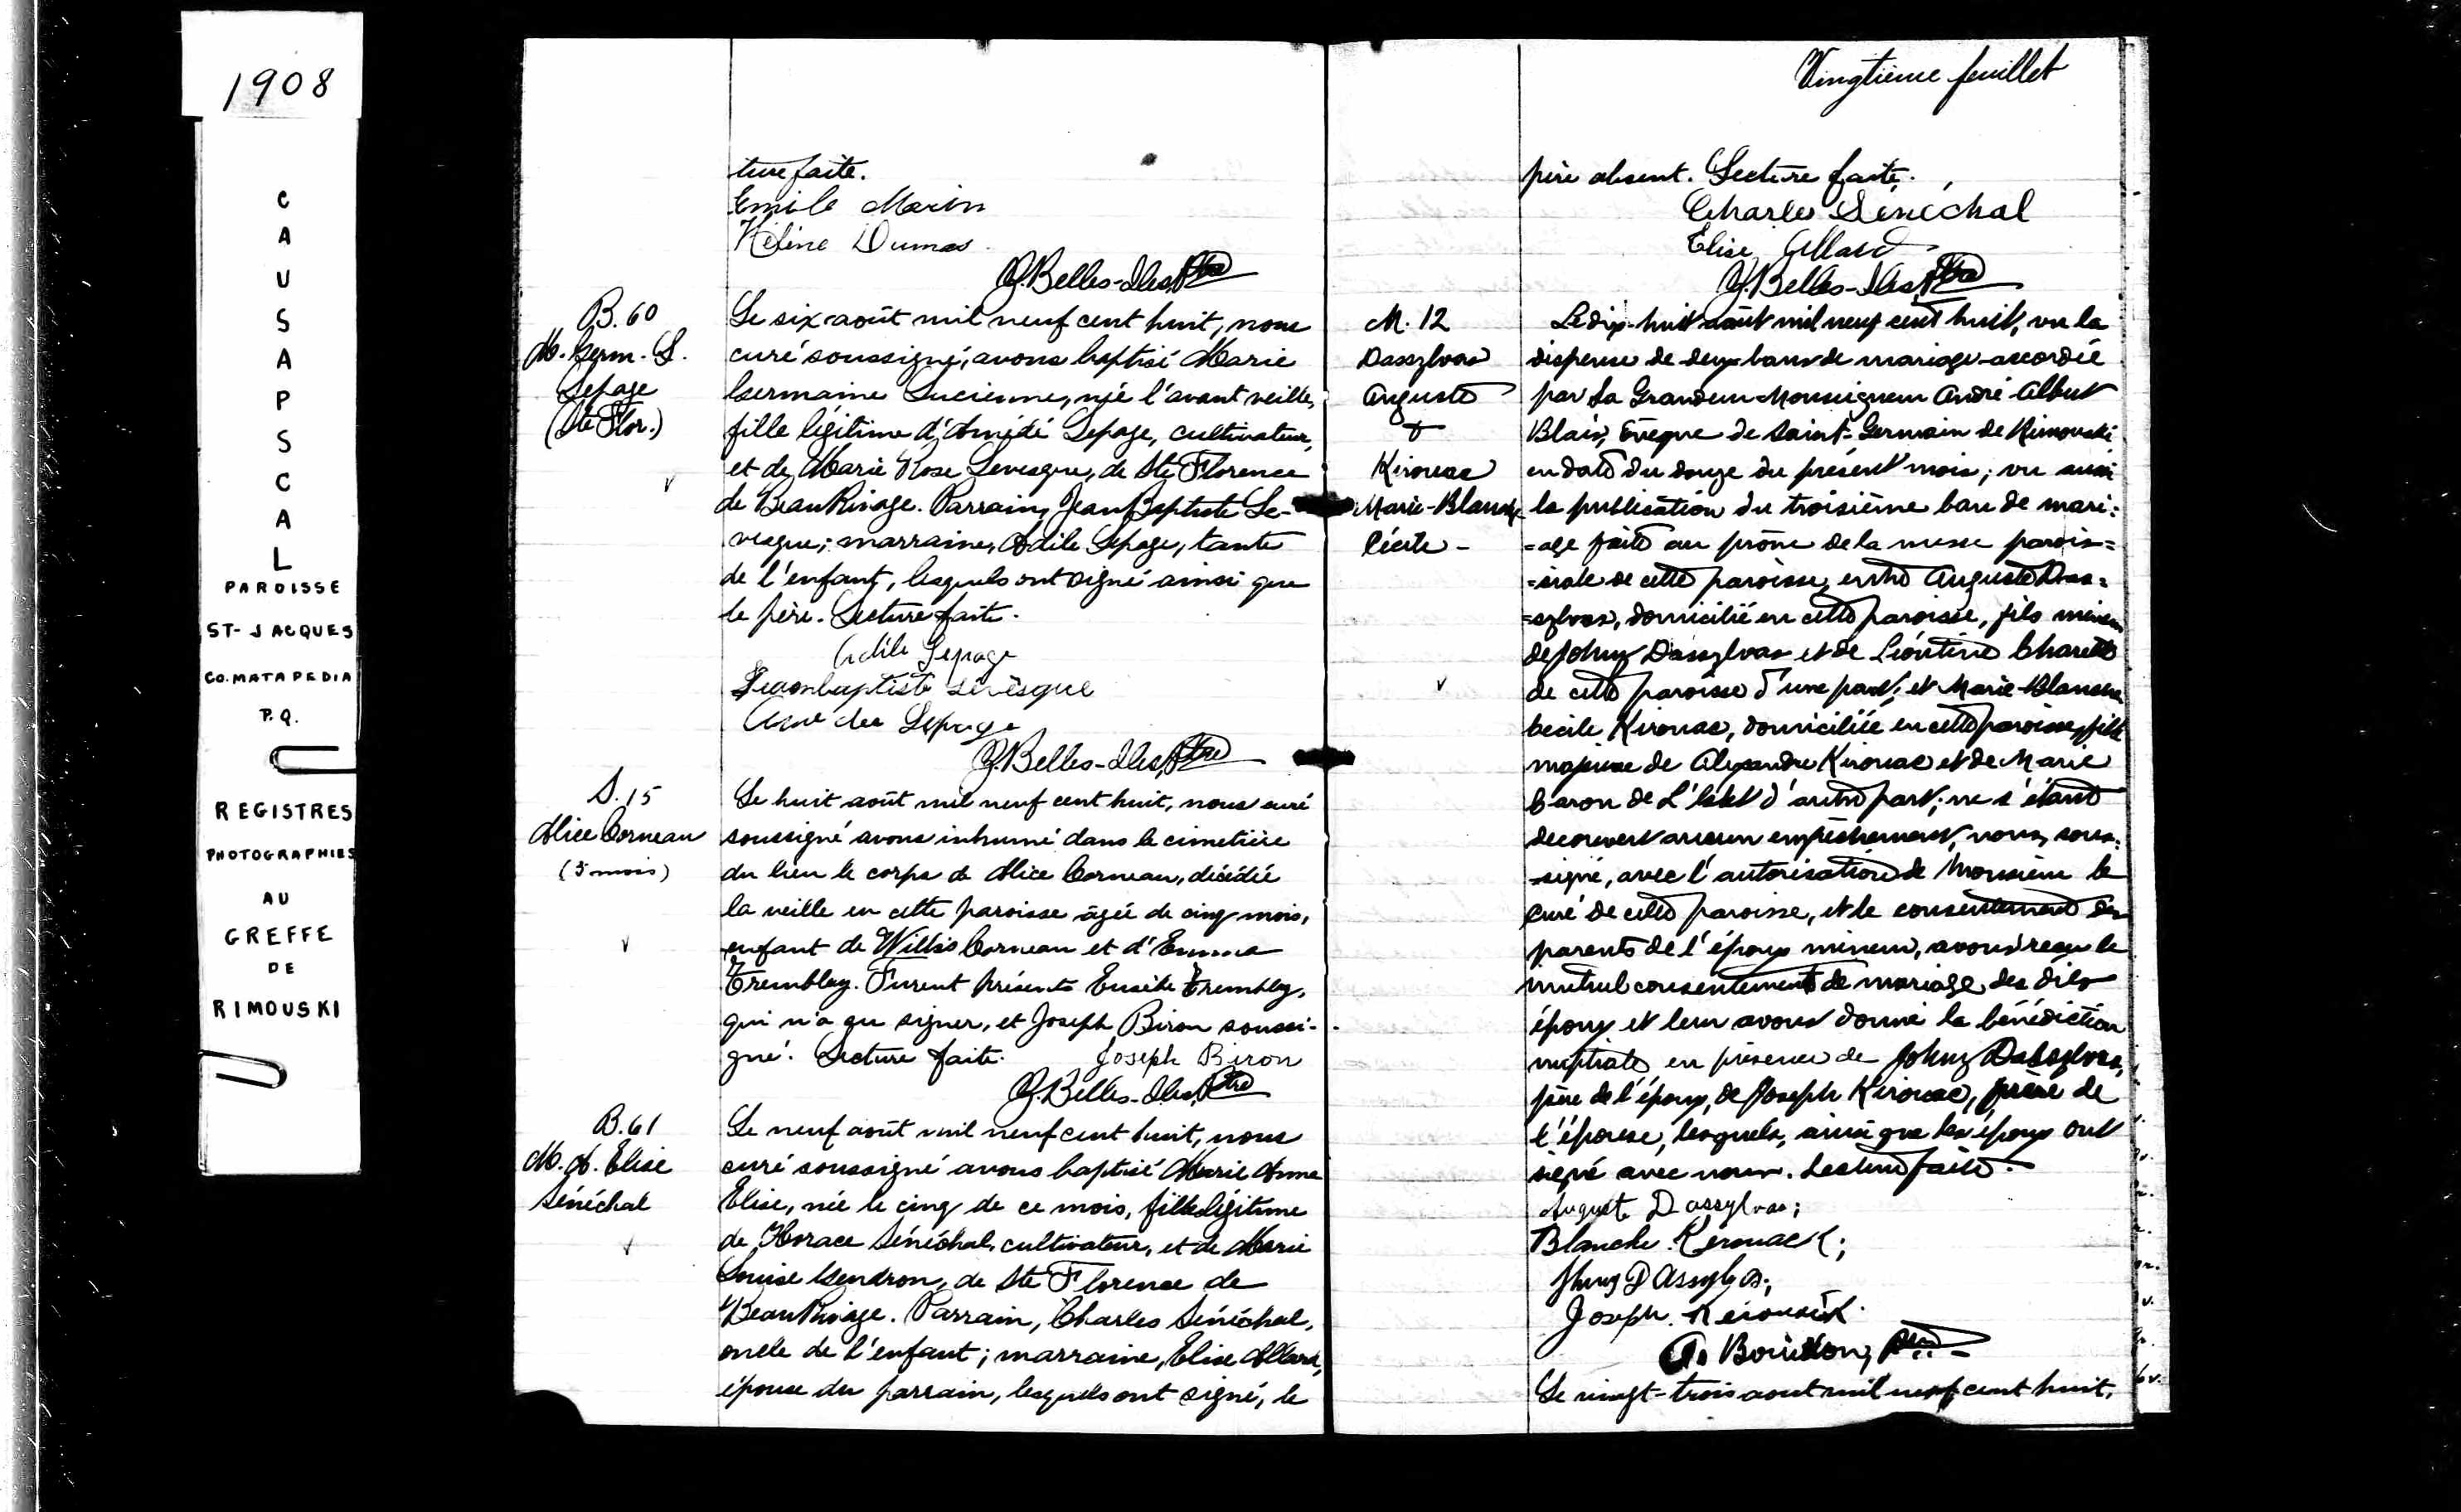 1908
CAUSAPSCAL
PAROISSE
ST-JACQUES
CO. MATAPEDIA
P.Q.
REGISTRES
PHOTOGRAPHIES
AU
GREFFE
DE
RIMOUSKI
ture faite.
Emile Marin
Héline Dumas.
J. Belles-Isles Ptre
B. 60
M. Germ. L.
Lepage
(Ste Flor.)
Le six août mil neuf cent huit, nous
curé soussigné, avons baptisé Marie
Germaine Lucienne, née l'avant veille,
fille légitime d'Amédé Lepage, cultivateur,
et de Marie Rose Levesque, de Ste Florence
de BeauRivage. Parrain, Jean Baptiste Le-
vesque; marraine, Odile Lepage, tante
de l'enfant, lesquels ont signé ainsi que
le père. Lecture faite.
Odile Lepage
Jeanbaptiste Levèsque
Lepage
J. Belles-Isles, Ptre
S. 15
Alice Corneau
(5 mois)
Le huit août mil neuf cent huit, nous curé
soussigné avons inhumé dans le cimetière
du lieu le corps de Alice Corneau, décédée
la veille en cette paroisse âgée de cinq mois,
enfant de Willis Corneau et d'Emma
Tremblay. Furent présents Eusèbe Tremblay,
qui n'a su signer, et Joseph Biron soussi-
gné. Lecture faite. Joseph Biron
J. Belles-Isles, Ptre
B. 61
M. A. Elise
Sénéchal
Le neuf août mil neuf cent huit, nous
curé soussigné avons baptisé Marie Anne
Elise, née le cinq de ce mois, fille légitime
de Horace Sénéchal, cultivateur, et de Marie
Louise Gendron, de Ste Florence de
BeauRivage. Parrain, Charles Sénéchal,
oncle de l'enfant; marraine, Elise Allard,
épouse du parrain, lesquels ont signé, le
Vingtième feuillet
père absent. Lecture faite.
Charles Sénéchal
Elise Allard
J. Belles-Isles, Ptre
M. 12
Dassylvas
Auguste
+
Kirouac
Marie-Blanche
Cécile -
Le dix-huit août mil neuf cent huit, vu la
dispense de deux bans de mariage accordée
par Sa Grandeur Monseigneur André Albert
Blais, Evêque de Saint-Germain de Rimouski
en date du douze du présent mois; vu aussi
la publication du troisième ban de mari=
=age faite au prône de la messe parois=
=siale de cette paroisse, entre Auguste Das=
=sylvas, domicilié en cette paroisse, fils mineur
de Johny Dassylvas et de Léontine Charette
de cette paroisse d'une part; et Marie-Blanche
Cécile Kirouac, domiciliée en cette paroisse, fille
majeure de Alexandre Kirouac et de Marie
Caron de L'Islet d'autre part; ne s'étant
découvert aucun empêchement, nous, sous=
=signé, avec l'autorisation de Monsieur le
Curé de cette paroisse, et le consentement des
parents de l'époux mineur, avons reçu le
mutuel consentement de mariage des dits
époux et leur avons donné la bénédiction
nuptiale, en présence de Johny Dassylvas,
père de l'époux, de Joseph Kirouac, frère de
l'épouse, lesquels, ainsi que les époux ont
signé avec nous. Lecture faite.
Auguste Dassylvas;
Blanche Kérouack;
Jhny DAssylvas;
Joseph Kérouack.
Bourdon, Ptre
Le vingt-trois aout mil neuf cent huit,